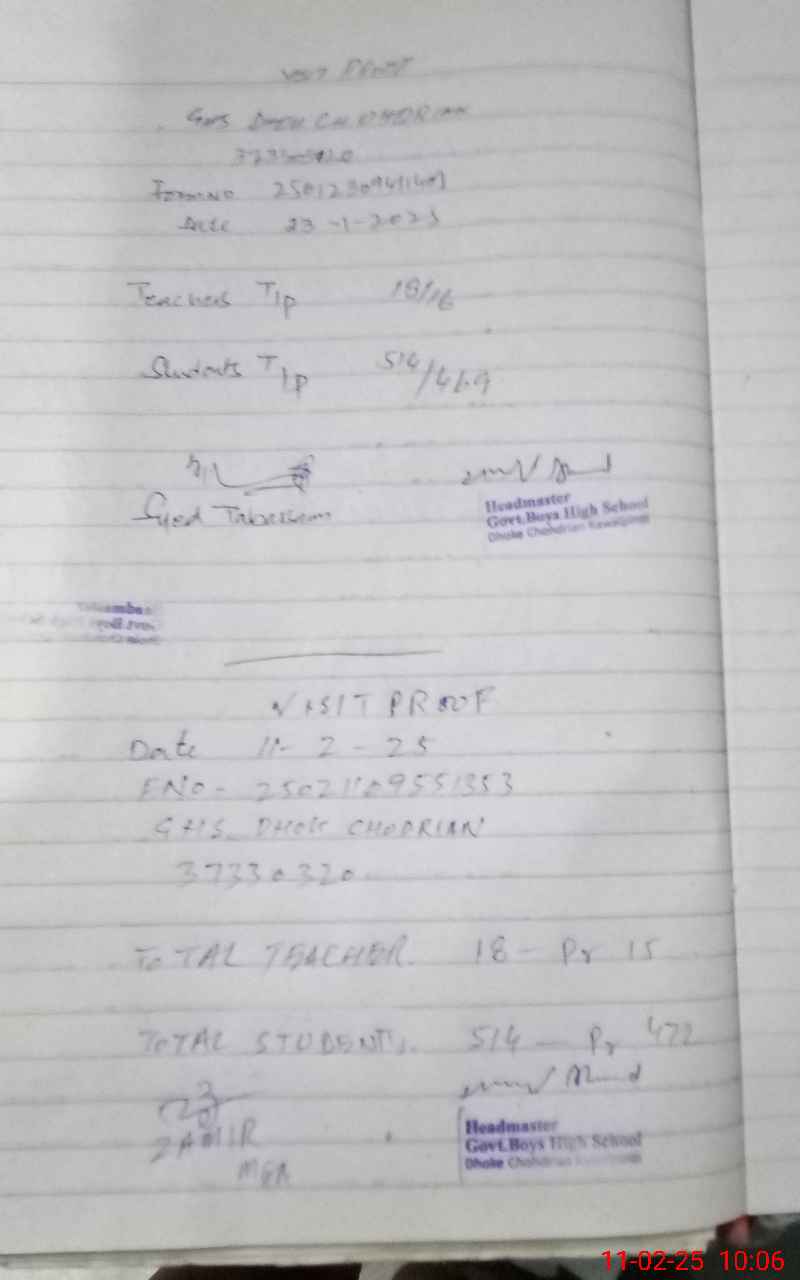 VISIT PROOF
GHS DHOK CHOHDRIAN
Form No
Date 23-1-2025
Teachers T/P 18/16
Students T/P 514/
Syed Tabassum
Headmaster
Govt.Boys High School
Dhoke Chohdrian Rawalpindi
VISIT PROOF
Date 11-2-25
FNO- 25021109551353
GHS DHOK CHODRIAN
37330320
TOTAL TEACHER. 18 - Pr 15
TOTAL STUDENTS. 514 - Pr 472
ZAMIR
MEA
Headmaster
Govt.Boys High School
Dhoke Chohdrian
11-02-25 10:06